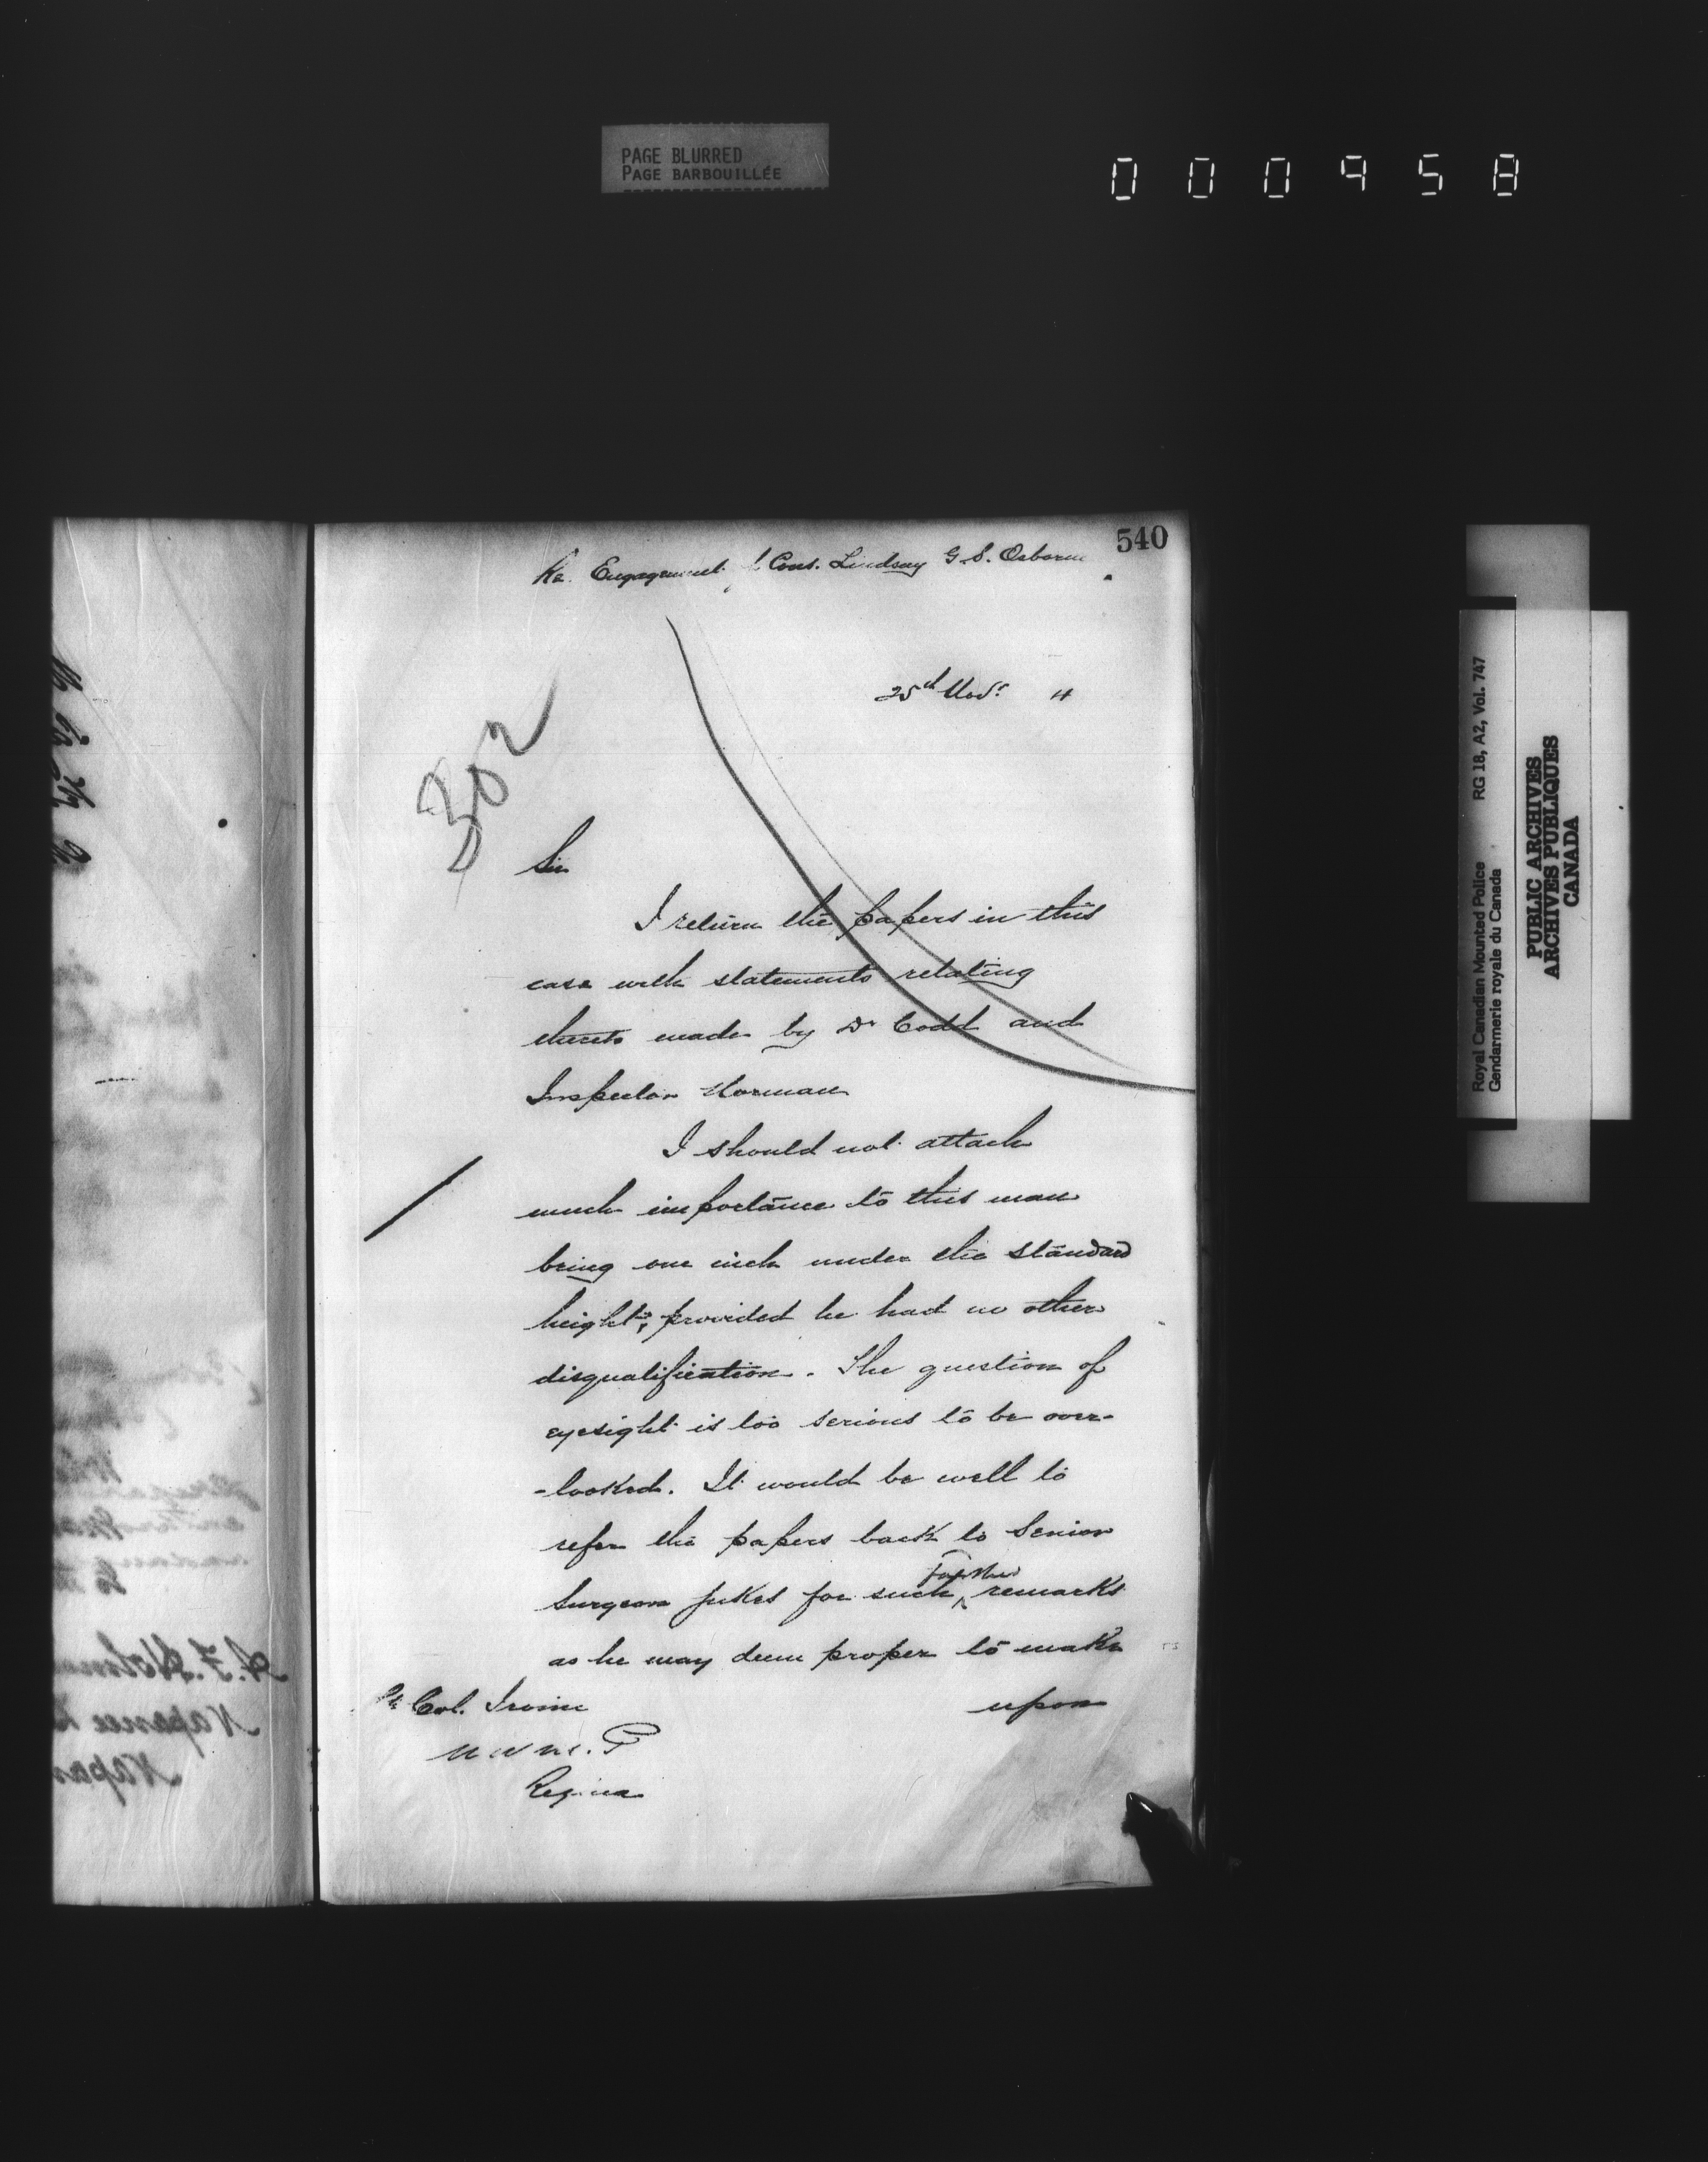 PAGE BLURRED
PAGE BARBOUILLÉE
000958
540
Re. Engagement of Cons. Lindsay G. S. Osborne
25th Novr. 4
302
Sir
I return the papers in this
case with statements relating
thereto made by Dr Codd and
Inspector Norman
I should not attach
much importance to this man
being one inch under the standard
height; provided he had no other
disqualification. The question of
eyesight is too serious to be over-
-looked. It would be well to
refer the papers back to Senior
Surgeon Jukes for such further remarks
as he may deem proper to make
upon
Lt Col. Irvine
N W M. P
Regina
Royal Canadian Mounted Police RG 18, A2, Vol. 747
Gendarmerie royale du Canada
PUBLIC ARCHIVES
ARCHIVES PUBLIQUES
CANADA